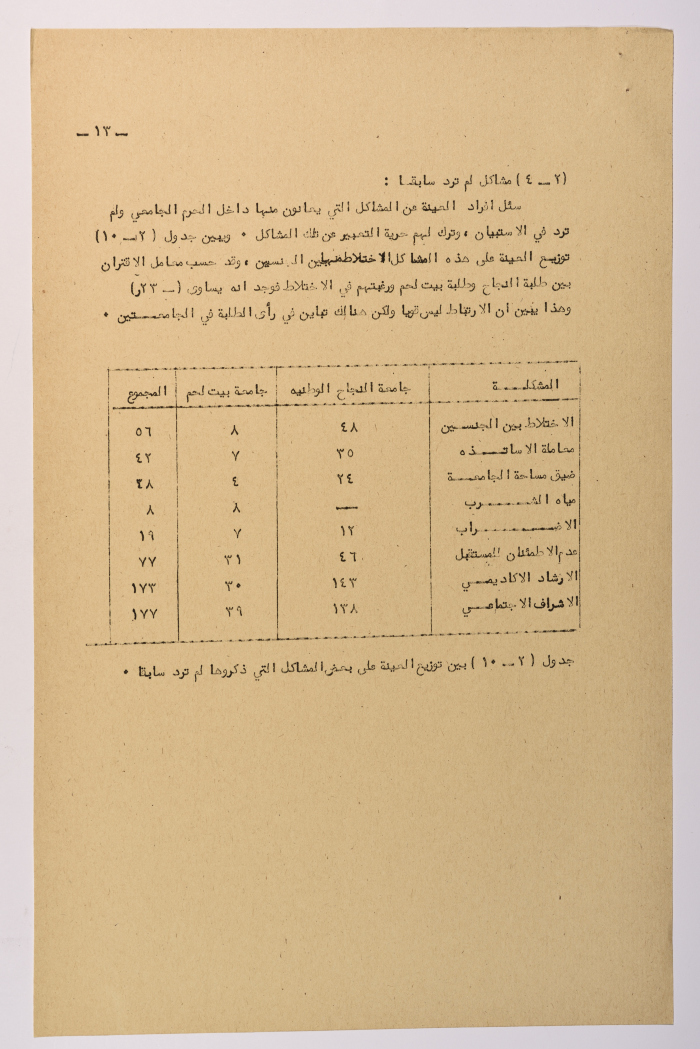 — ١٣ —
(٢ — ٤) مشاكل لم ترد سابقا :
سئل افراد العينة عن المشاكل التي يعانون منها داخل الحرم الجامعي ولم
ترد في الاستبيان ، وترك لهم حرية التعبير عن تلك المشاكل ٠ ويبين جدول (٢ — ١٠)
توزيع العينة على هذه المشاكل الاختلاط بين الجنسين ، وقد حسب معامل الاقتران
بين طلبة النجاح وطلبة بيت لحم ورغبتهم في الاختلاط فوجد انه يساوى (— ٢٣ر)
وهذا يبين ان الارتباط ليس قويا ولكن هنالك تباين في رأى الطلبة في الجامعتين ٠
المشكلة جامعة النجاح الوطنيه جامعة بيت لحم المجموع
الاختلاط بين الجنسين ٤٨ ٨ ٥٦
معاملة الاساتذه ٣٥ ٧ ٤٢
ضيق مساحة الجامعة ٢٤ ٤ ٢٨
مياه الشرب — ٨ ٨
الاضراب ١٢ ٧ ١٩
عدم الاطمئنان للمستقبل ٤٦ ٣١ ٧٧
الارشاد الاكاديمي ١٤٣ ٣٠ ١٧٣
الاشراف الاجتماعي ١٣٨ ٣٩ ١٧٧
جدول (٢ — ١٠) يبين توزيع العينة على بعض المشاكل التي ذكروها لم ترد سابقا ٠